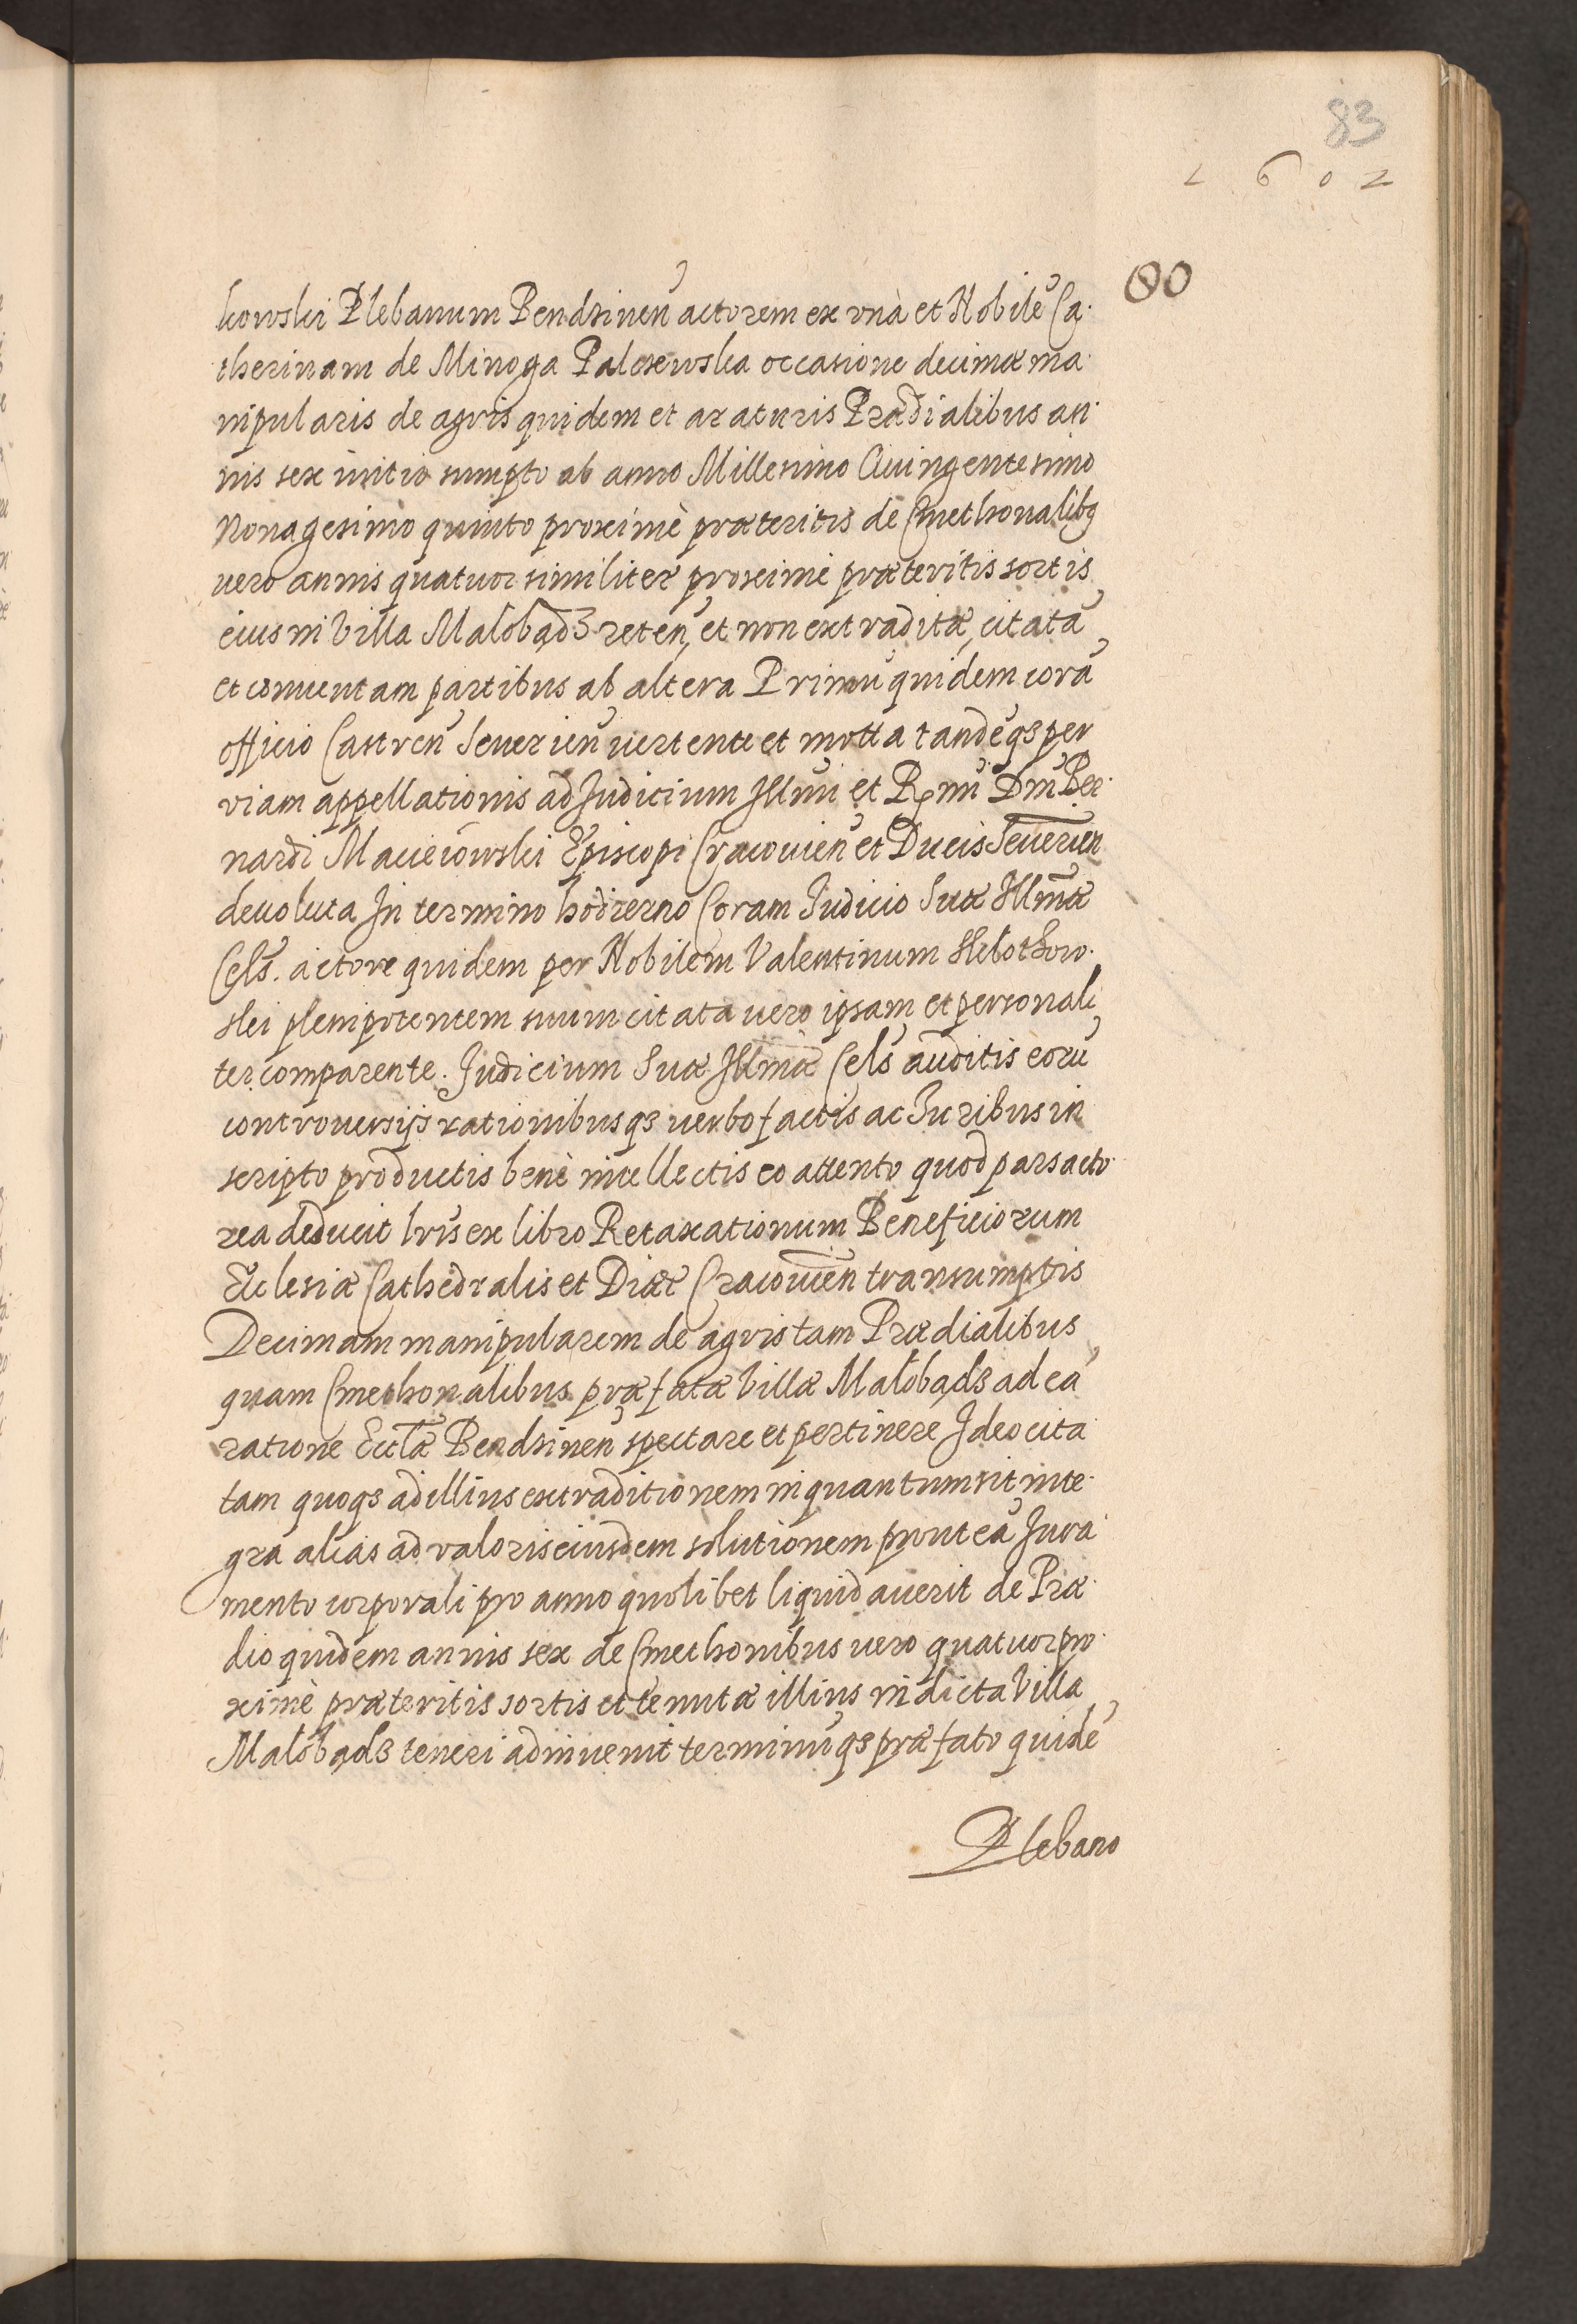 83
1602
80
kowski Plebanum Bendzinen̄ actorem ex unà et Nobilē Ca-
therinam de Minoga Palczewska occasione decimæ ma-
nipularis de agris quidem et araturis Prædialibus an-
nis sex initio sumpto ab anno Millesimo Quingentesimo
Nonagesimo quinto proximè præteritis de Cmethonalibq
vero annis quatuor similiter proximè præteritis sortis
eius in Villa Małobądz reten̄ et non extraditæ, citatā
et conuentam partibus ab altera Primū quidem corā
officio Castren̄ Seuerien̄ vertente et motta tandēqs per
viam appellationis ad Judicium Illmi et Rmi Dni Ber-
nardi Macieiowski Episcopi Cracouien̄ et Ducis Seuerien̄
deuoluta In termino hodierno Coram Judicio Suæ Illmæ
Cels. actore quidem per Nobilem Valentinum Kłothow-
ski plenipotentem suum citata vero ipsam et personali
ter comparente. Judicium Suæ Illmæ Cels auditis eorū
controuersijs rationibusqs verbo factis ac Juribus in
scripto productis benè intellectis eo attento quod pars acto-
rea deducit lrīs ex libro Retaxationum Beneficiorum
Ecclesiæ Cathedralis et Diæc Cracouien̄ transumptis
Decimam manipularem de agris tam Prædialibus
quam Cmethonalibus præfatæ Villæ Małobądz ad eā
ratione Ecclæ Bendzinen̄ spectare et pertinere Ideo cita
tam quoqs ad illius extraditionem in quantum sit inte-
gra alias ad valoris eiusdem solutionem prout eā Jura-
mento corporali pro anno quolibet liquidauerit de Præ-
dio quidem annis sex de Cmethonibus vero quatuor pro-
ximè præteritis sortis et tenutæ illius in dicta Villa
Małobądz teneri adinuenit terminūqs præfato quidē
Plebano